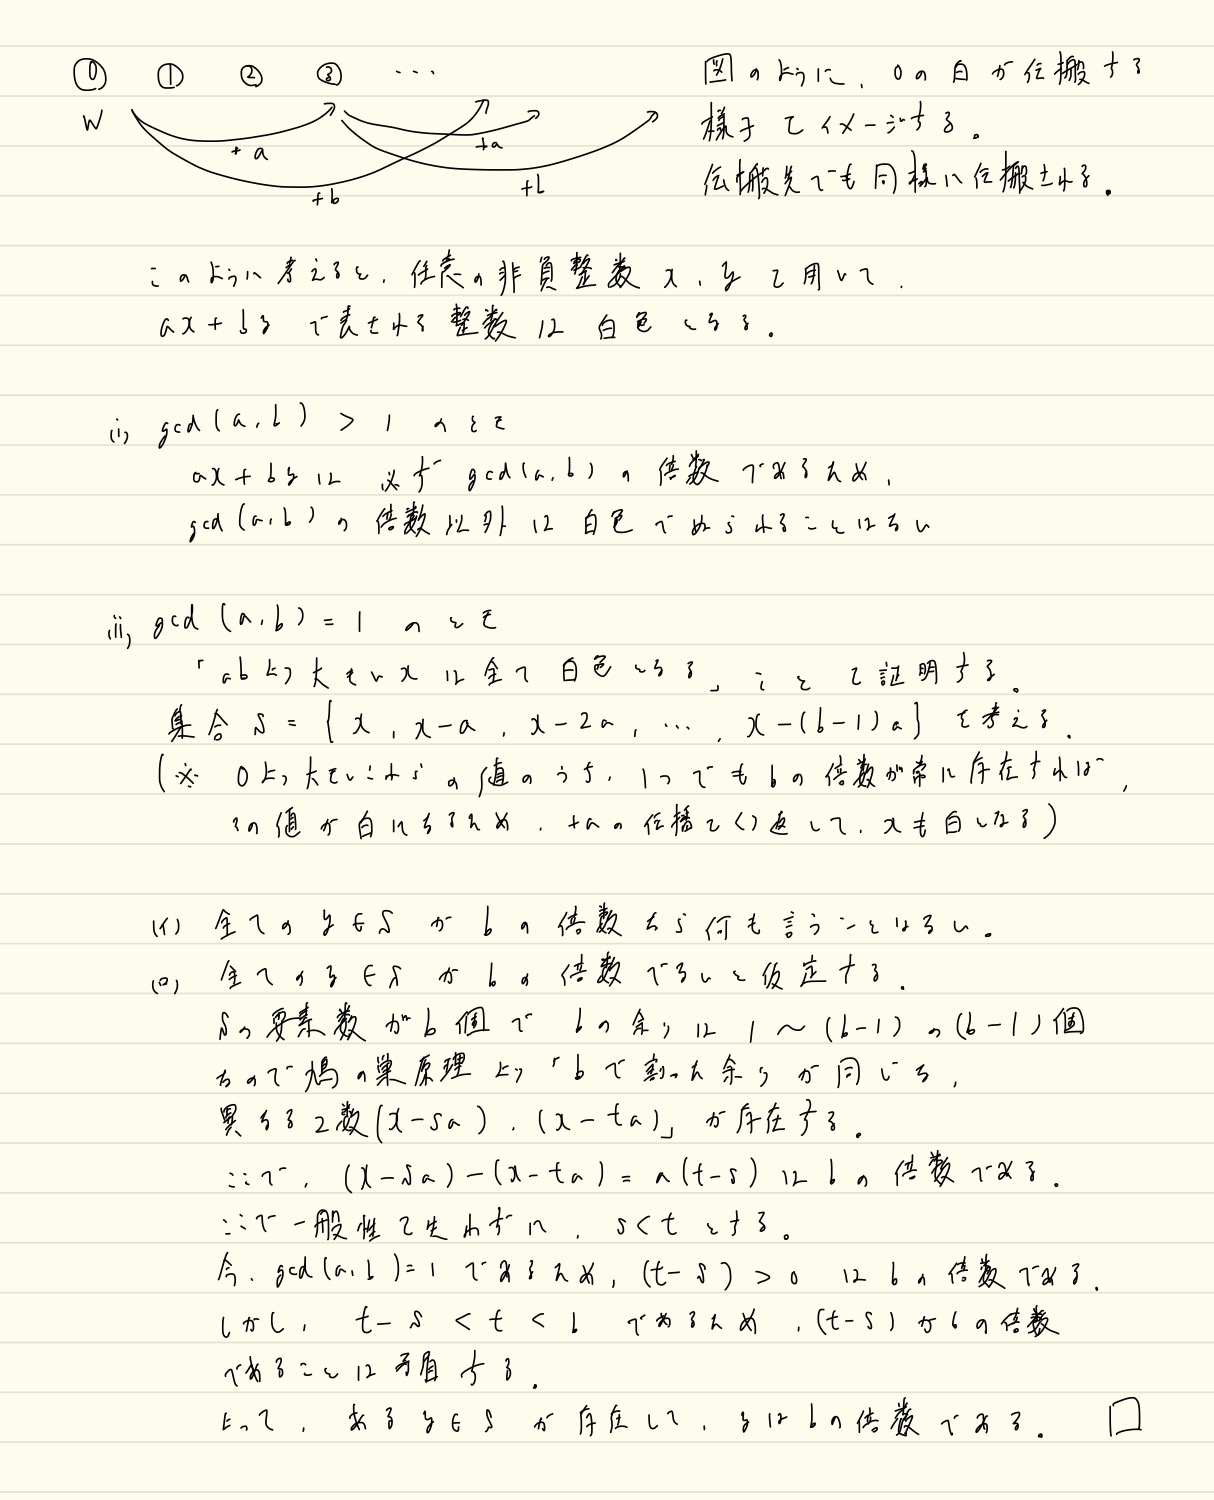 ⓪ ① ② ③ ...
W
+a
+b
+a
+b
図のように、0の白が伝搬する
様子をイメージする。
伝搬先でも同様に伝搬される。
このように考えると、任意の非負整数 x, y を用いて、
ax+by で表される整数は 白色となる。
(i) gcd(a,b) > 1 のとき
ax+by は 必ず gcd(a,b) の 倍数 であるため、
gcd(a,b) の 倍数以外は 白色でぬられることはない
(ii) gcd(a,b)=1 のとき
「abより大きい x は全て 白色となる」ことを証明する。
集合 S = { x , x-a , x-2a , ... , x-(b-1)a} を考える。
(※ 0より大きいこれらの値のうち、1つでも bの 倍数が常に存在すれば、
その値が白になるため、+aの伝播をくり返して、xも白となる)
(イ) 全ての y∈S が bの 倍数なら何も言うことはない。
(ロ) 全ての y∈S が bの 倍数でないと仮定する。
Sの要素数がb個で bの余りは 1〜(b-1) の(b-1)個
なので鳩の巣原理より「bで割った余りが同じな、
異なる2数(x-sa), (x-ta)」が存在する。
ここで、(x-sa)-(x-ta) = a(t-s) は bの 倍数である。
ここで一般性を失わずに、s<t とする。
今、gcd(a,b)=1 であるため、(t-s)>0 は bの 倍数である。
しかし、t-s < t < b であるため、(t-s)がbの倍数
であることは矛盾する。
よって、ある y∈S が存在して、yはbの倍数である。 □